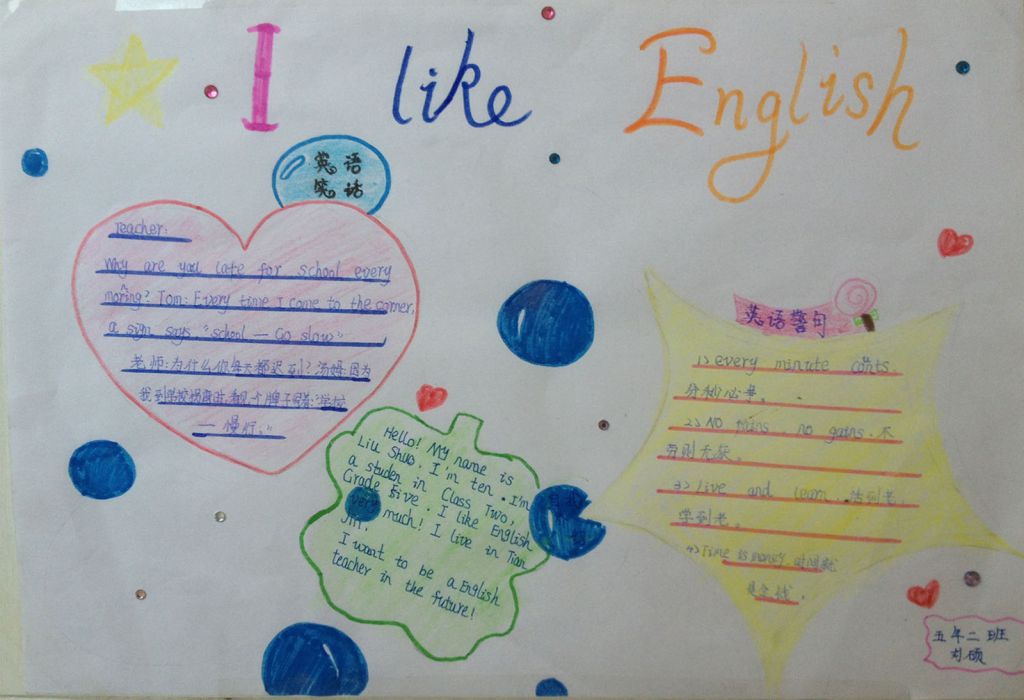 I like English
英语
笑话
Teacher:
Why are you late for school every
morning? Tom: Every time I come to the corner,
a sign says "school — Go slow"
老师:为什么你每天都迟到?汤姆:因为
我到学校拐角时,看见个牌子写着:"学校
— 慢行。"
Hello! My name is
Liu Shuo. I'm ten. I'm
a studen in Class Two,
Grade Five. I like English
very much! I live in Tian
Jin.
I want to be a English
teacher in the future!
英语警句
1> every minute conts.
分秒必争。
2> NO pains, no gains. 不
劳则无获。
3> Live and learn. 活到老,
学到老。
4> Time is money 时间就
是金钱.
五年二班
刘硕